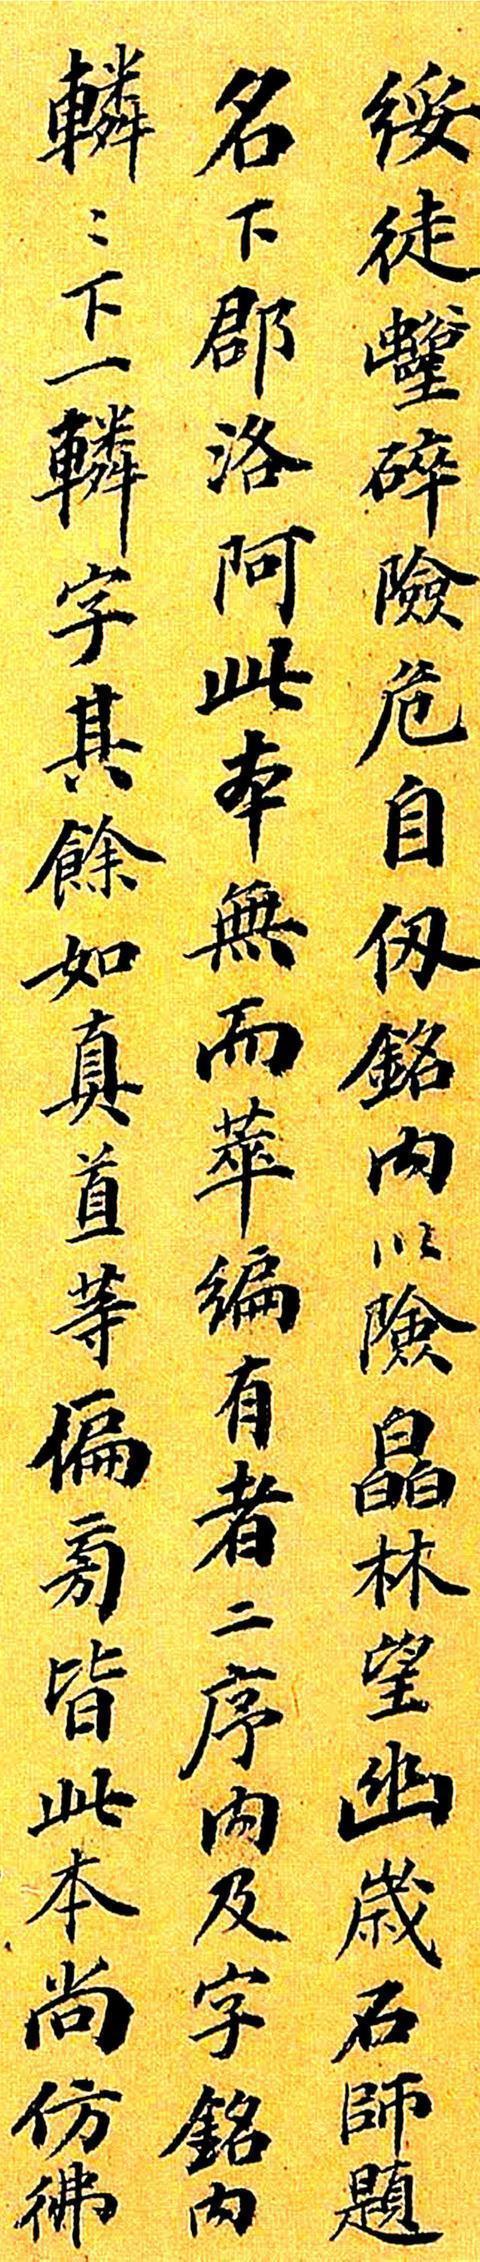 綏徒壑碎險危自仭銘内以險皛林望幽歲石師題
名下郡洛阿此本無而萃編有者二序内及字銘内
轔〻下一轔字其餘如真直等偏旁皆此本尚仿彿